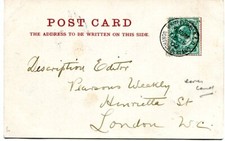 POST CARD
THE ADDRESS TO BE WRITTEN ON THIS SIDE.
Description Editor
Pearsons Weekly
Henrietta St
London W.C.